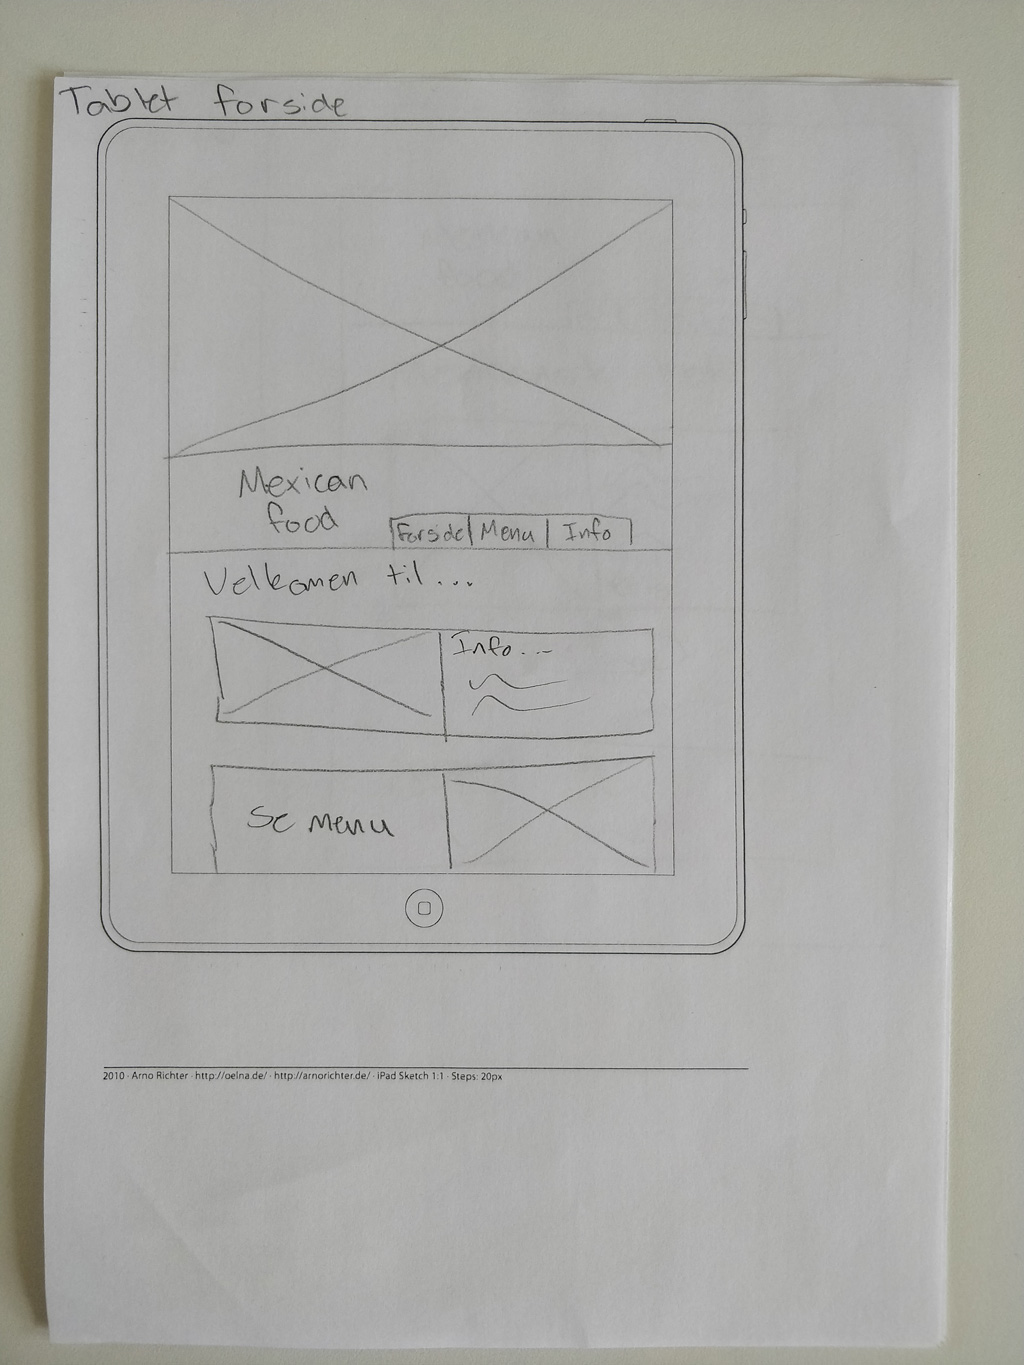 Tablet forside
Mexican
food
Forside Menu Info
Velkomen til...
Info...
Se menu
2010 · Arno Richter · http://oelna.de/ · http://arnorichter.de/ · iPad Sketch 1:1 · Steps: 20px